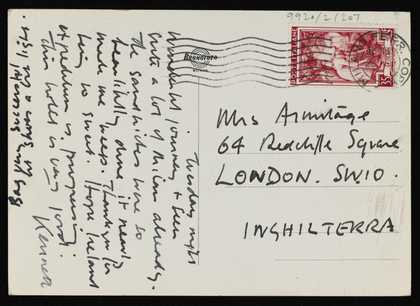 9920/2/207
Tuesday night
Wonderful journey & seen
quite a lot of Milan already.
The sandwiches were so
beautifully done it nearly
made me weep. Thank you for
being so sweet. Hope Ireland
expedition is progressing.
This hotel is very loud.
Kenneth
Mrs Armitage
64 Redcliffe Square
LONDON. SW10.
INGHILTERRA